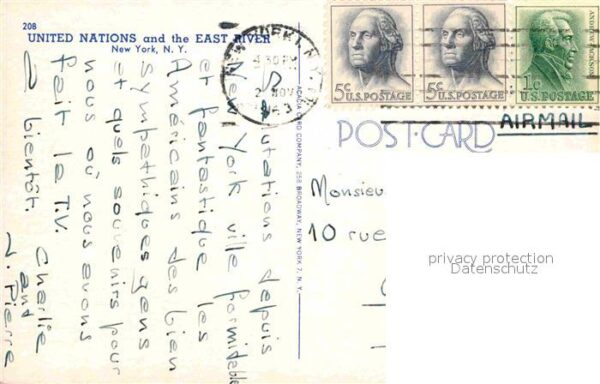 208
UNITED NATIONS and the EAST RIVER
New York, N. Y.
NEW YORK, N.Y.
30 PM
2 NOV
5¢
U.S. POSTAGE
5¢
U.S. POSTAGE
1¢
U.S. POSTAGE
ANDREW JACKSON
Salutations depuis
New York ville formidable
et fantastique les
Américains des bien
sympathiques gens
et quels souvenirs pour
nous où nous avons
fait la T.V.
à bientôt.
Charlie
and
J. Pierre
ACACIA CARD COMPANY, 258 BROADWAY, NEW YORK 7, N. Y.
POST-CARD
AIRMAIL
Monsieu
10 rue
privacy protection
Datenschutz